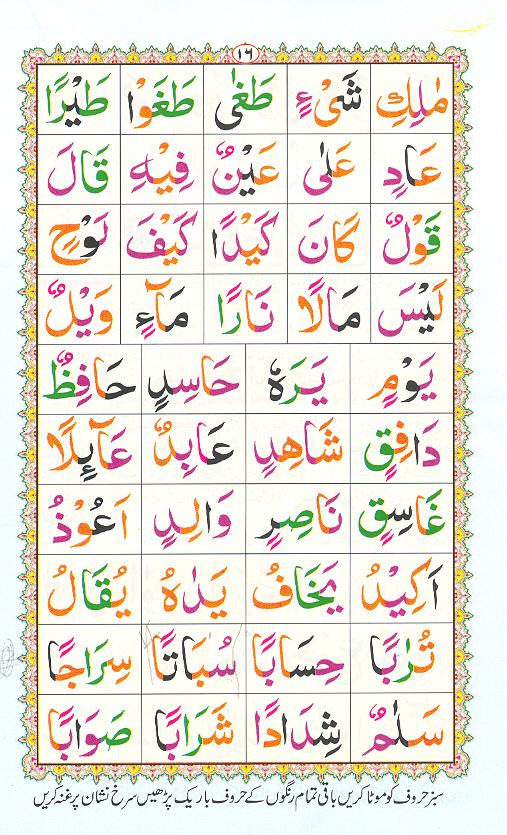 ١٦
مٰلِكِ شَیْءٍ طَغٰی طَغَوْا طَیْرًا
عَادٍ عَلٰی عَیْنٌ فِیْهِ قَالَ
قَوْلٌ كَانَ كَیْدًا كَیْفَ نَوْحٍ
لَیْسَ مَالًا نَارًا مَآءٍ وَیْلٌ
یَوْمٍ یَرَهٗ حَاسِدٍ حَافِظٌ
دَافِقٍ شَاهِدٍ عَابِدٌ عَآئِلًا
غَاسِقٍ نَاصِرٍ وَالِدٍ اَعُوْذُ
اَكِیْدُ یَخَافُ یَدٰهُ یُقَالُ
تُرٰبًا حِسَابًا سُبَاتًا سِرَاجًا
سَلٰمٌ شِدَادًا شَرَابًا صَوَابًا
سبز حروف کو موٹا کریں باقی تمام رنگوں کے حروف باریک پڑھیں سرخ نشان پر غنہ کریں